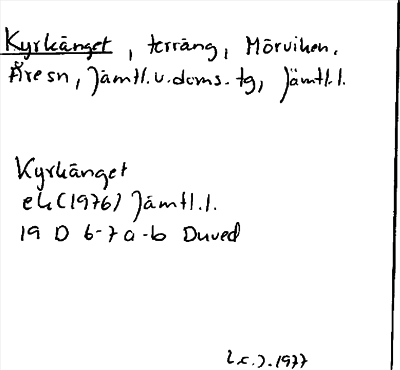 Kyrkänget, terräng, Mörviken,
Åre sn, Jämtl.v.doms. tg, Jämtl.l.
Kyrkänget
ek (1976) Jämtl.l.
19 D 6-7 a-b Duved
1977